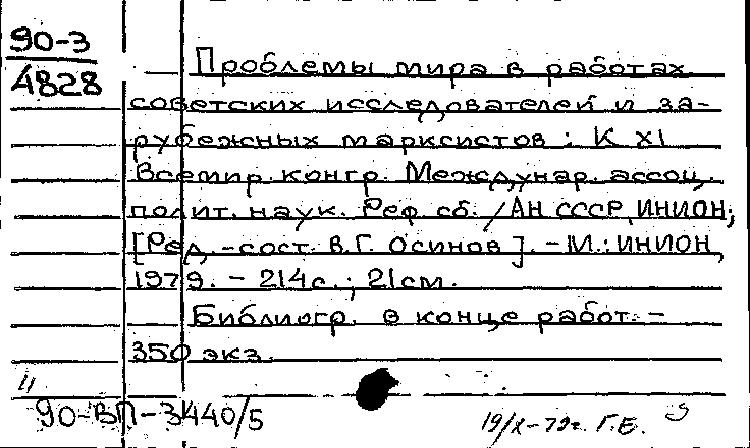 90-3
4828
Проблемы мира в работах
советских исследователей и за-
рубежных марксистов: К XI
Всемир. конгр. Междунар. ассоц.
полит. наук. Реф. сб. / АН СССР, ИНИОН;
[Ред.-сост. В.Г. Осинов]. - М.: ИНИОН,
1979. - 214 с.; 21 см.
Библиогр. в конце работ. -
350 экз.
90-ВП-3440/5
19/X-79г. Г.Е.